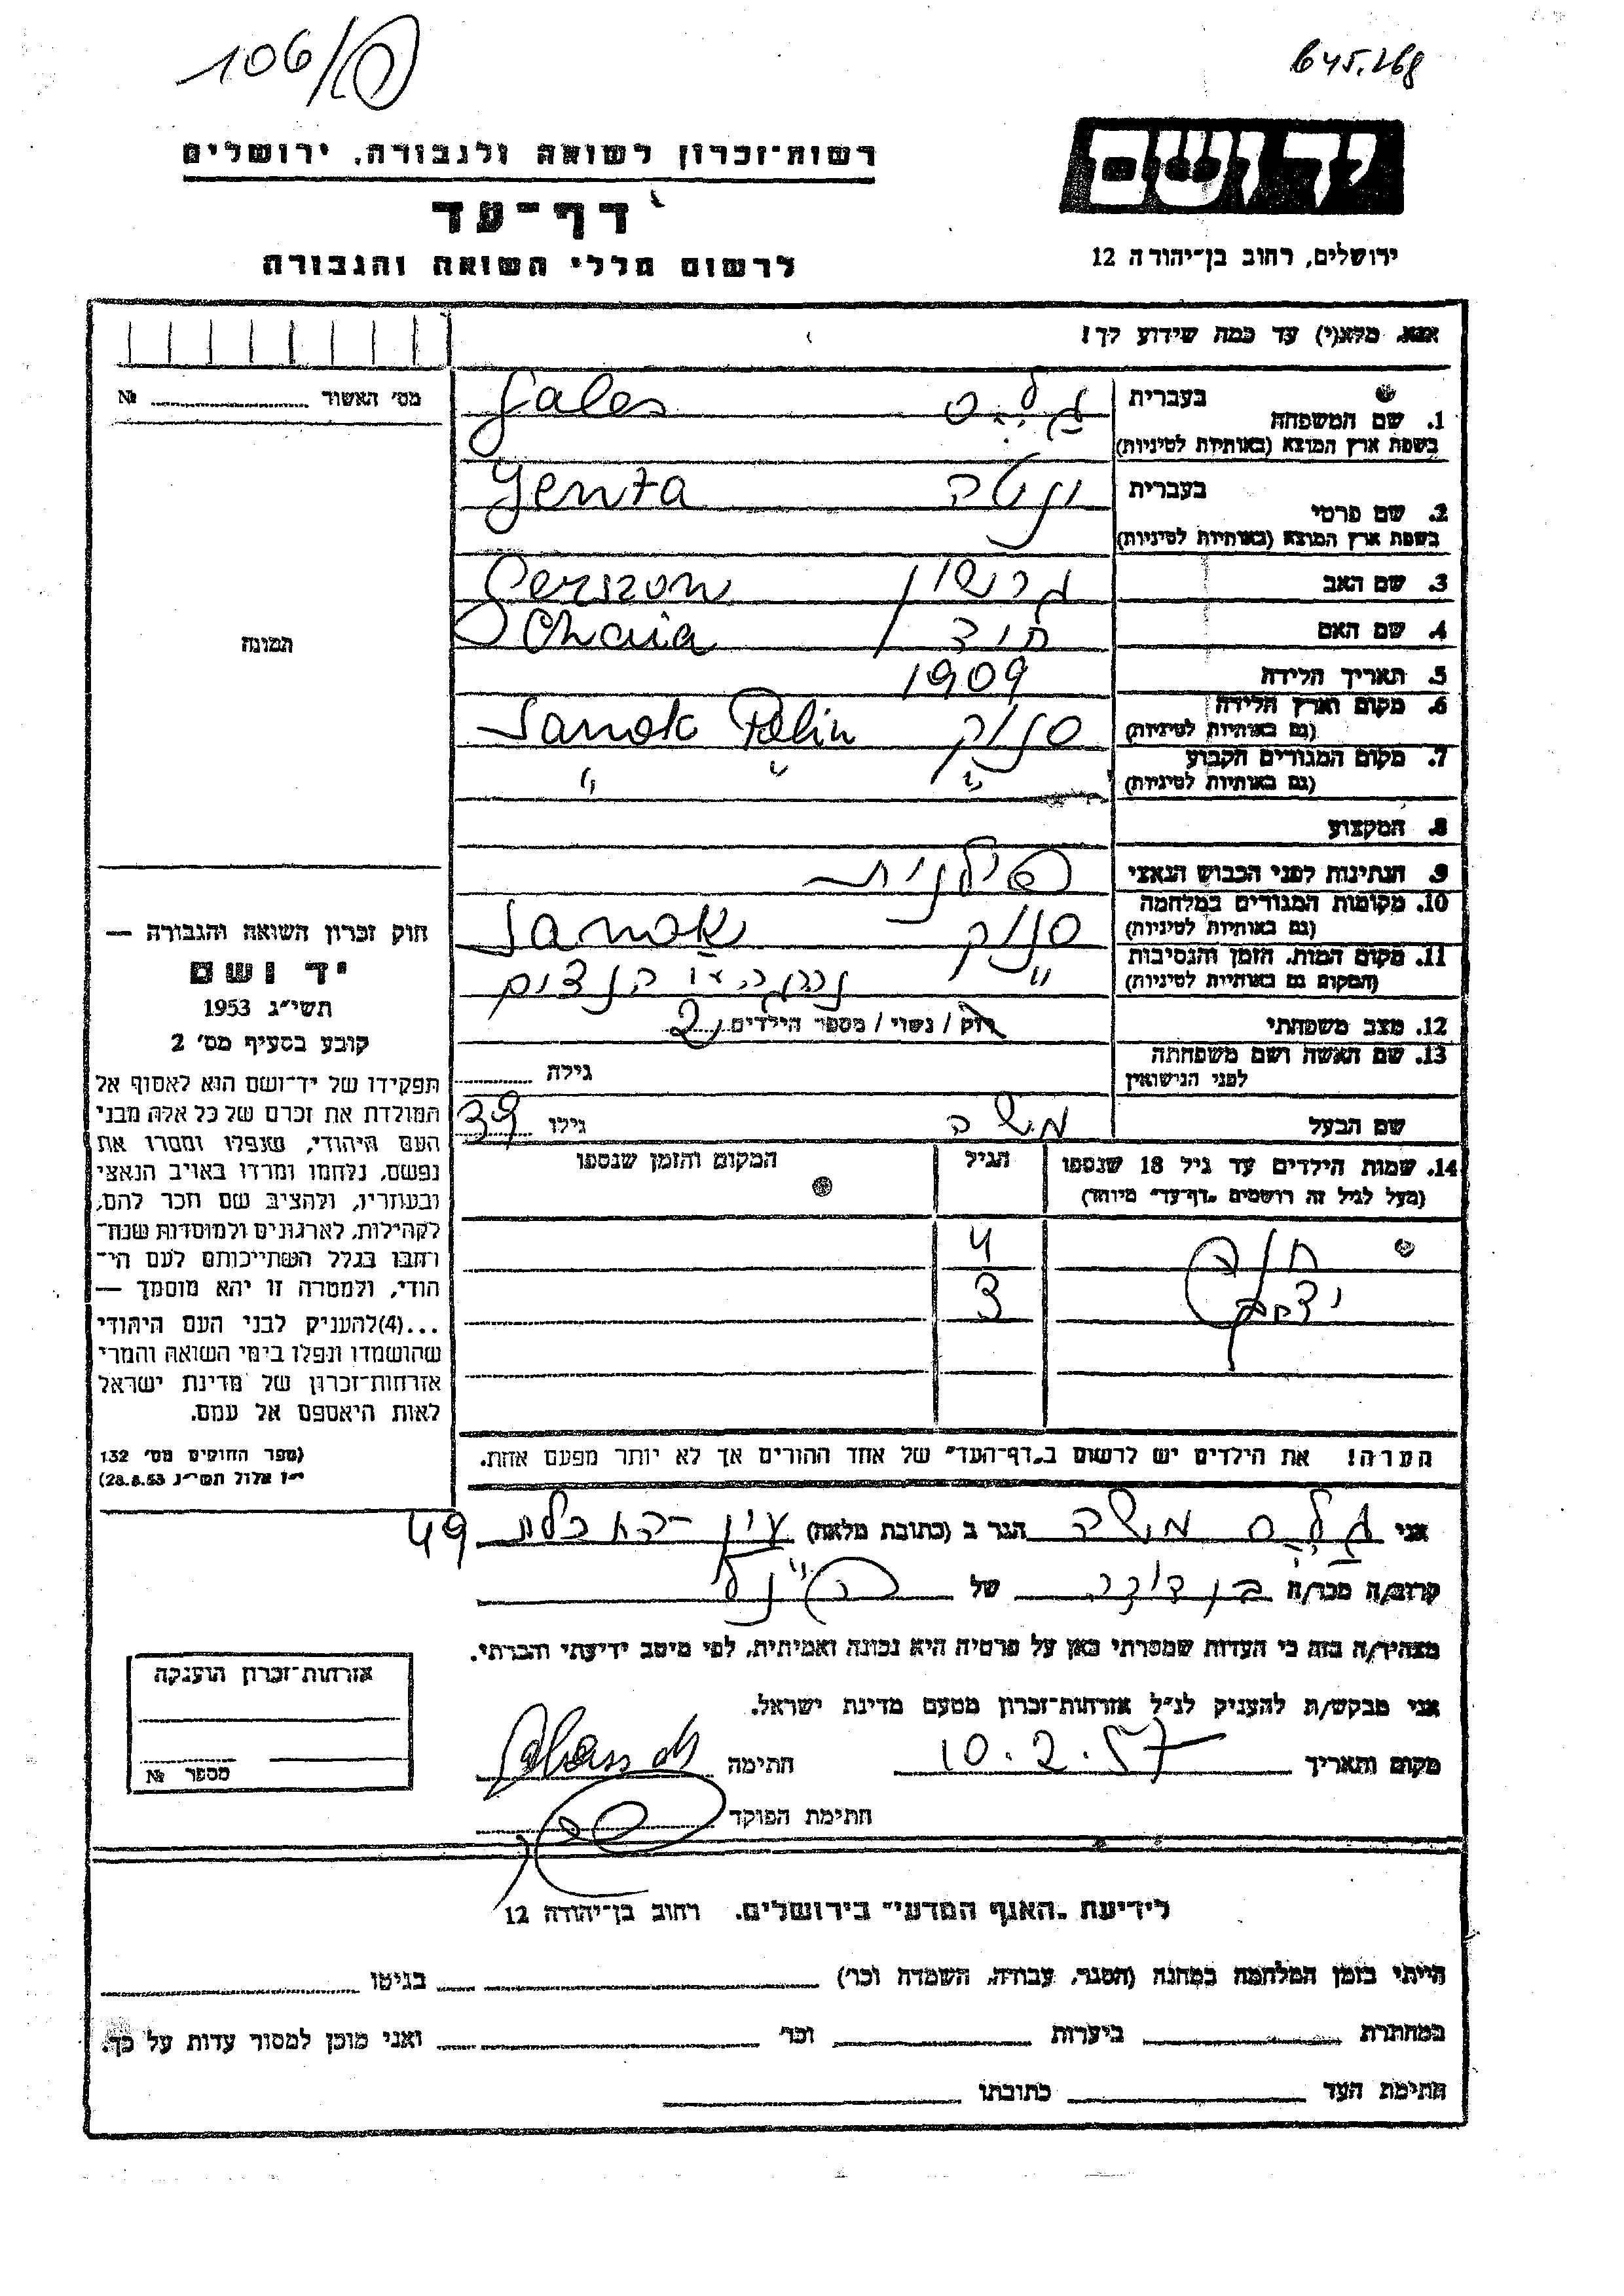 106/
645.268
יד ושם
רשות־זכרון לשואה ולגבורה, ירושלים
דף־עד
לרשום חללי השואה והגבורה
ירושלים, רחוב בן־יהודה 12
אנא, מלא(י) עד כמה שידוע לך!
מס' האשור № 
1. שם המשפחה בעברית
בשפת ארץ המוצא (באותיות לטיניות)
Gales
2. שם פרטי בעברית ינטה
בשפת ארץ המוצא (באותיות לטיניות)
Yenta
3. שם האב גרשון Gerszon
4. שם האם Chaia
5. תאריך הלידה 1909
6. מקום וארץ הלידה סנוק Sanok Polin
(גם באותיות לטיניות)
7. מקום המגורים הקבוע " " "
(גם באותיות לטיניות)
8. המקצוע
9. הנתינות לפני הכבוש הנאצי פולנית
10. מקומות המגורים במלחמה סנוק Sanok
(גם באותיות לטיניות)
11. מקום המות, הזמן והנסיבות "
(המקום גם באותיות לטיניות)
12. מצב משפחתי רוק / נשוי / מספר הילדים 2
13. שם האשה ושם משפחתה גילה
לפני הנישואין
שם הבעל משה גילו 39
14. שמות הילדים עד גיל 18 שנספו הגיל המקום והזמן שנספו
(מעל לגיל זה רושמים „דף־עד" מיוחד)
4
יצחק 3
הערה! את הילדים יש לרשום ב„דף־העד" של אחד ההורים אך לא יותר מפעם אחת.
תמונה
חוק זכרון השואה והגבורה —
יד ושם
תשי"ג 1953
קובע בסעיף מס' 2
תפקידו של יד־ושם הוא לאסוף אל
המולדת את זכרם של כל אלה מבני
העם היהודי, שנפלו ומסרו את
נפשם, נלחמו ומרדו באויב הנאצי
ובעוזריו, ולהציב שם וזכר להם,
לקהילות, לארגונים ולמוסדות שנח־
רחבו בגלל השתייכותם לעם הי־
הודי, ולמטרה זו יהא מוסמך —
...(4)להעניק לבני העם היהודי
שהושמדו ונפלו בימי השואה והמרי
אזרחות־זכרון של מדינת ישראל
לאות היאספם אל עמם.
(ספר החוקים מס' 132
י"ז אלול תשי"ג 28.8.53)
אני משה הגר ב (כתובת מלאה) 49
קרוב/ה מכר/ה של
מצהיר/ה בזה כי העדות שמסרתי כאן על פרטיה היא נכונה ואמיתית, לפי מיטב ידיעתי והכרתי.
אני מבקש/ת להעניק לנ"ל אזרחות־זכרון מטעם מדינת ישראל.
מקום ותאריך 10.2.57 חתימה
חתימת הפוקד
אזרחות־זכרון הוענקה
מספר №
לידיעת „האגף המדעי" בירושלים. רחוב בן־יהודה 12
הייתי בזמן המלחמה במחנה (הסגר, עבודה, השמדה וכו') בגיטו
במחתרת ביערות וכו' ואני מוכן למסור עדות על כך.
חתימת העד כתובתו